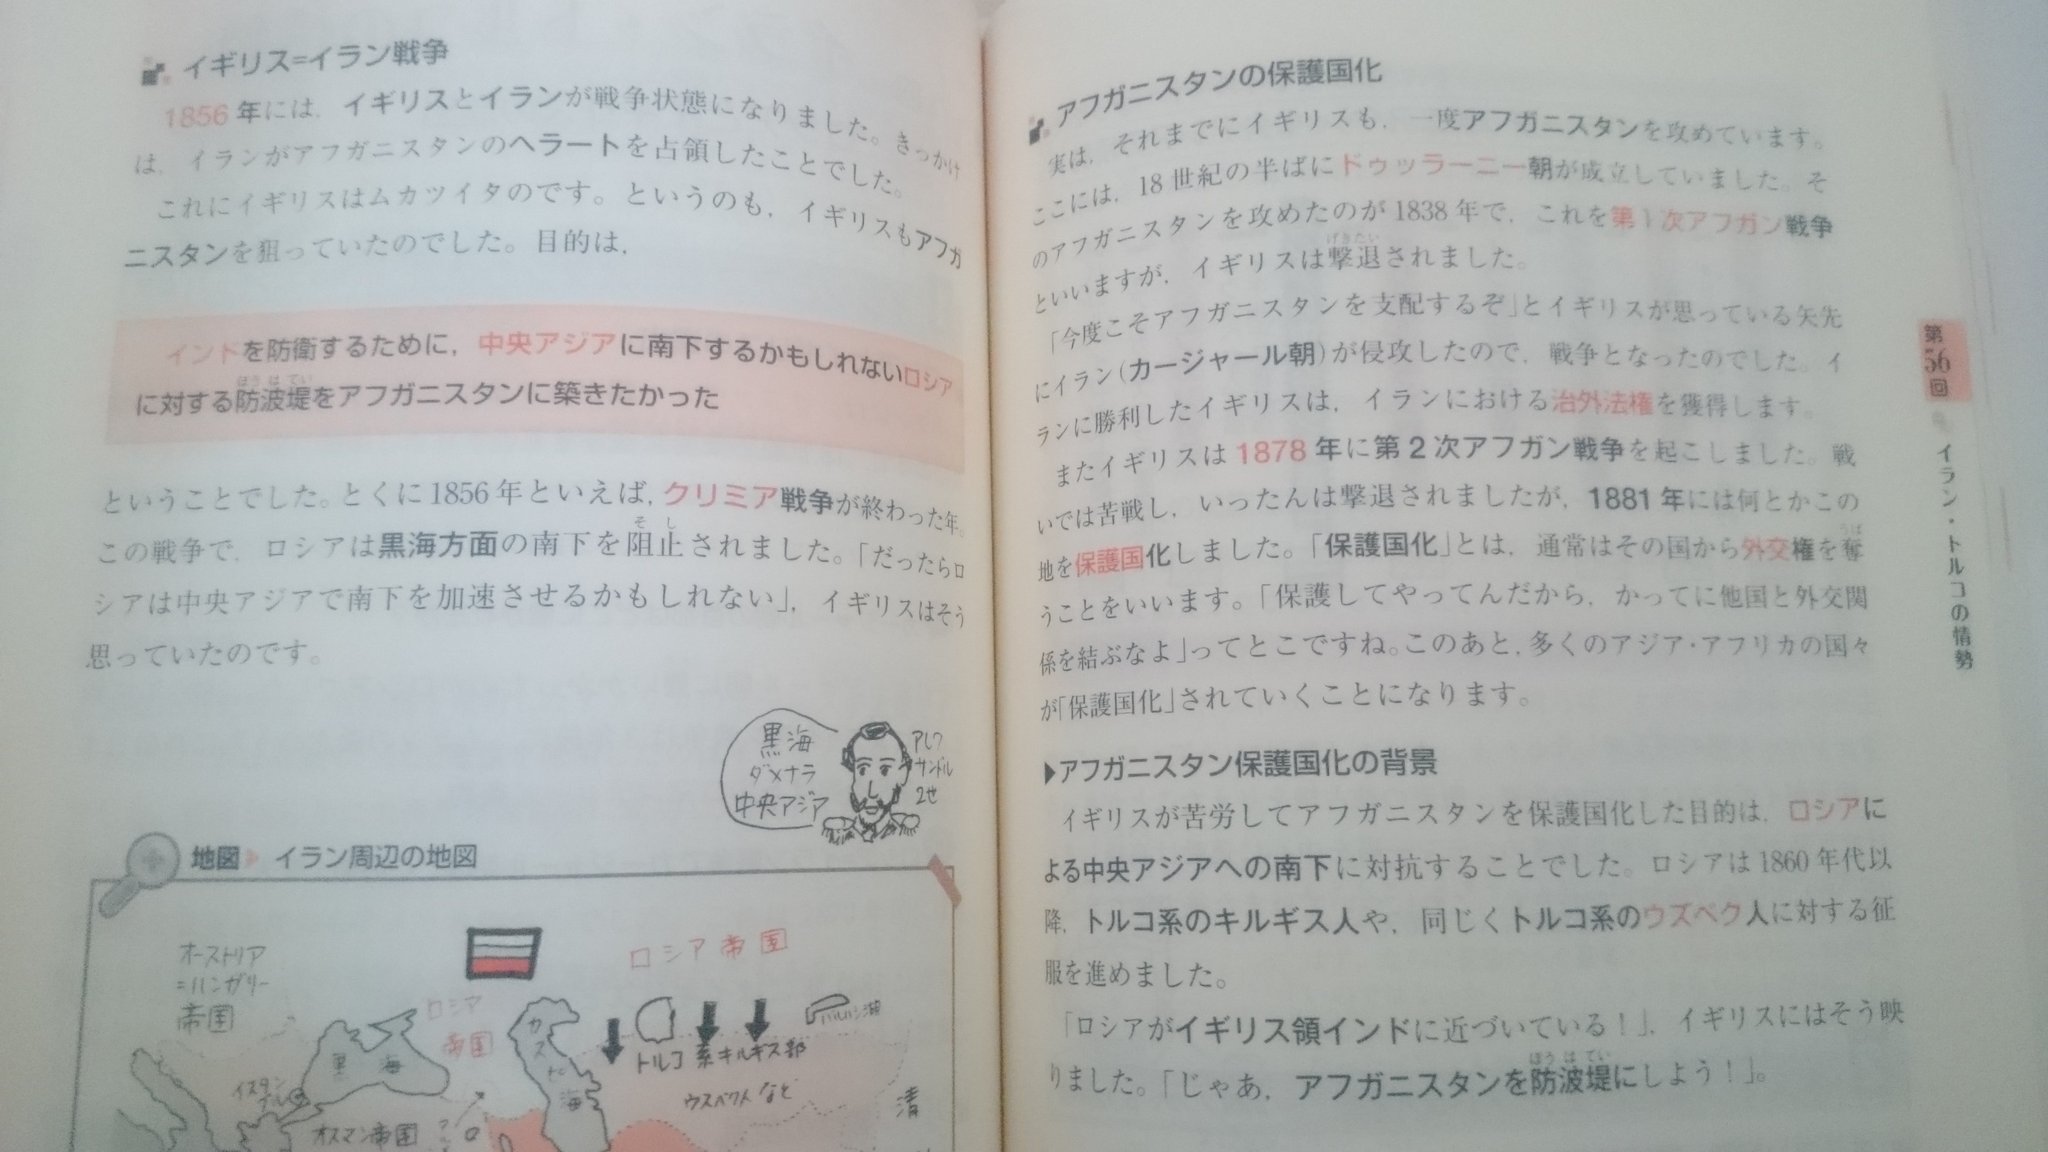 イギリス=イラン戦争
1856年には，イギリスとイランが戦争状態になりました。きっかけ
は，イランがアフガニスタンのヘラートを占領したことでした。
これにイギリスはムカツイタのです。というのも，イギリスもアフガ
ニスタンを狙っていたのでした。目的は，
インドを防衛するために，中央アジアに南下するかもしれないロシア
ぼうはてい
に対する防波堤をアフガニスタンに築きたかった
ということでした。とくに1856年といえば，クリミア戦争が終わった年。
そし
この戦争で，ロシアは黒海方面の南下を阻止されました。「だったらロ
シアは中央アジアで南下を加速させるかもしれない」，イギリスはそう
思っていたのです。
黒海
ダメナラ
中央アジア
アレク
サンドル
2世
地図 イラン周辺の地図
オーストリア
=ハンガリー
帝国
ロシア帝国
ロシア
帝国
黒海
カスピ海
バルハシ湖
トルコ系キルギス部
ウズベク人など
イスタン
ブル
オスマン帝国
清
アフガニスタンの保護国化
実は，それまでにイギリスも，一度アフガニスタンを攻めています。
ここには，18世紀の半ばにドゥッラーニー朝が成立していました。そ
のアフガニスタンを攻めたのが1838年で，これを第1次アフガン戦争
げきたい
といいますが，イギリスは撃退されました。
「今度こそアフガニスタンを支配するぞ」とイギリスが思っている矢先
にイラン(カージャール朝)が侵攻したので，戦争となったのでした。イ
ランに勝利したイギリスは，イランにおける治外法権を獲得します。
またイギリスは1878年に第2次アフガン戦争を起こしました。戦
いでは苦戦し，いったんは撃退されましたが，1881年には何とかこの
うば
地を保護国化しました。「保護国化」とは，通常はその国から外交権を奪
うことをいいます。「保護してやってんだから，かってに他国と外交関
係を結ぶなよ」ってとこですね。このあと，多くのアジア・アフリカの国々
が「保護国化」されていくことになります。
アフガニスタン保護国化の背景
イギリスが苦労してアフガニスタンを保護国化した目的は，ロシアに
よる中央アジアへの南下に対抗することでした。ロシアは1860年代以
降，トルコ系のキルギス人や，同じくトルコ系のウズベク人に対する征
服を進めました。
「ロシアがイギリス領インドに近づいている！」，イギリスにはそう映
ぼうはてい
りました。「じゃあ，アフガニスタンを防波堤にしよう！」。
第56回 イラン・トルコの情勢